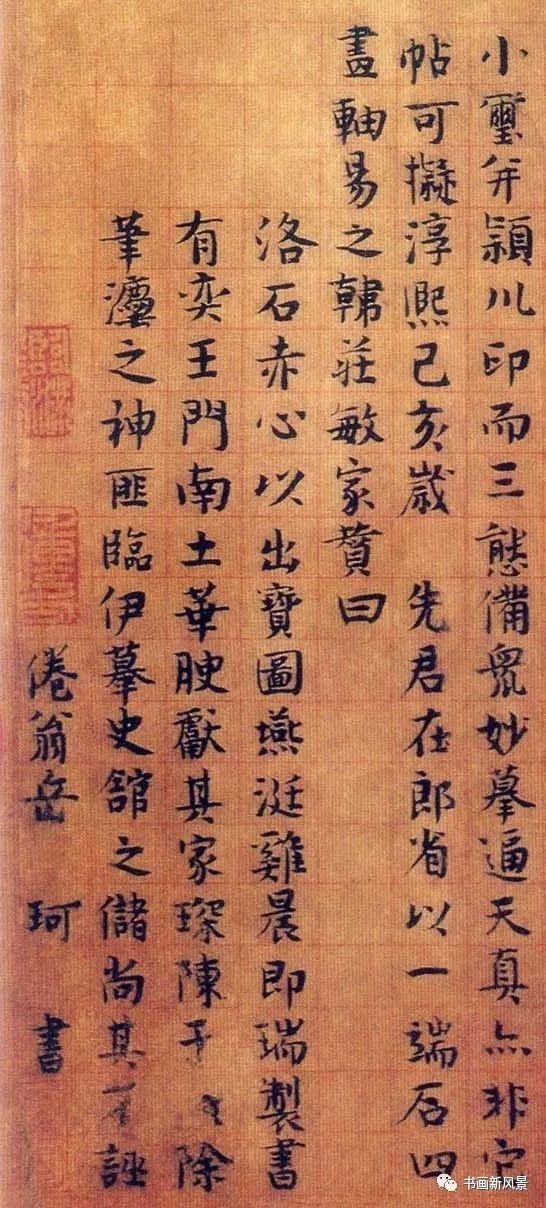 小璽并潁川印而三態備衆妙摹逼天真亦非它
帖可擬淳熙己亥歲 先君在郎省以一端石四
畫軸易之韓莊敏家贊曰
洛石赤心以出寶圖燕涎雞晨即瑞製書
有奕王門南土華腴獻其家琛陳于 除
筆濩之神匪臨伊摹史館之儲尚其 誣
倦翁岳 珂 書
书画新风景